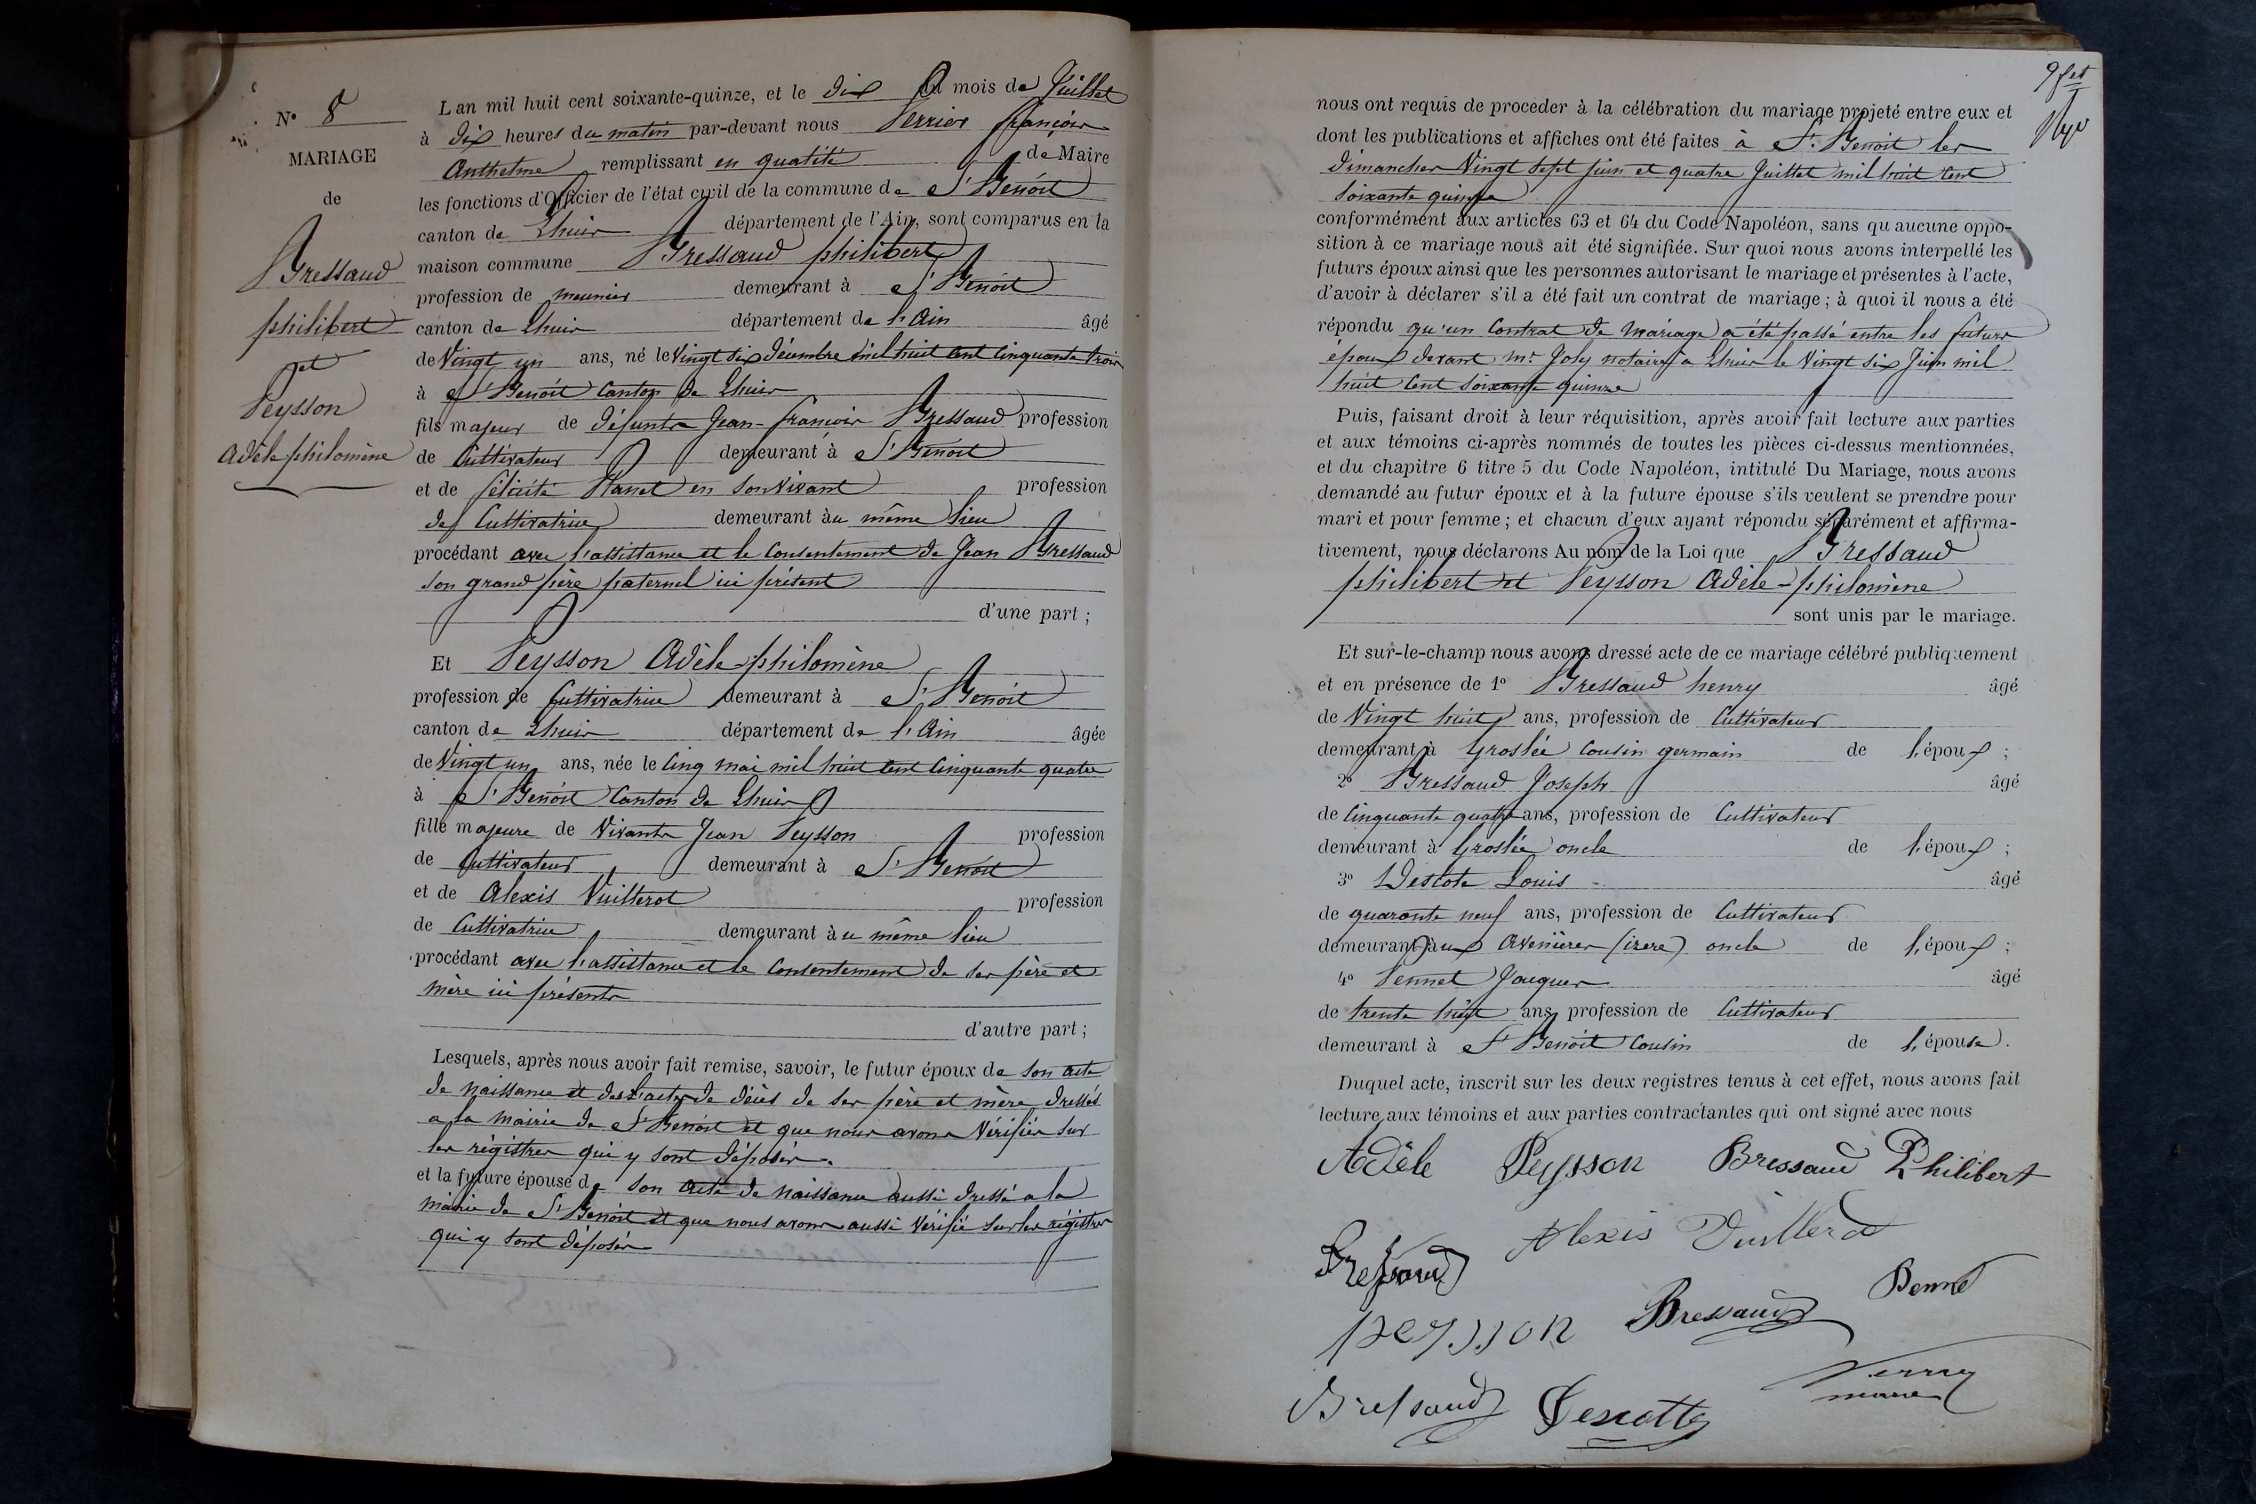 N° 8
MARIAGE
de
Bressaud
philibert
et
Peysson
Adèle philomène
L'an mil huit cent soixante-quinze, et le dix du mois de Juillet
à dix heures du matin par-devant nous Perrier françois
Anthelme remplissant en qualité de Maire
les fonctions d'Officier de l'état civil de la commune de St Benoît
canton de Lhuis département de l'Ain, sont comparus en la
maison commune Bressaud philibert
profession de meunier demeurant à St Benoit
canton de Lhuis département de l'Ain âgé
de Vingt un ans, né le Vingt six décembre mil huit cent Cinquante trois
à St Benoit Canton de Lhuis
fils majeur de défunts Jean-françois Bressaud profession
de Cultivateur demeurant à St Benoit
et de félicité en son vivant profession
de Cultivatrice demeurant àu même lieu
procédant avec l'assistance et le Consentement de Jean Bressaud
son grand père paternel ici présent
d'une part ;
Et Peysson Adèle-philomène
profession de Cultivatrice demeurant à St Benoit
canton de Lhuis département de l'Ain âgée
de Vingt un ans, née le Cinq mai mil huit cent Cinquante quatre
à St Benoit Canton de Lhuis
fille majeure de Vivants Jean Peysson profession
de Cultivateur demeurant à St Benoit
et de Alexis Vuillerot profession
de Cultivatrice demeurant àu même lieu
procédant avec l'assistance et le Consentement de ses père et
mère ici présents
d'autre part ;
Lesquels, après nous avoir fait remise, savoir, le futur époux de son acte
de naissance et des actes de décès de ses père et mère dressés
a la mairie de St Benoit et que nous avons Vérifiés sur
les régistres qui y sont déposés.
et la future épouse de son acte de naissance aussi dressé a la
mairie de St Benoit et que nous avons aussi Vérifié sur les régistres
qui y sont déposés
nous ont requis de procéder à la célébration du mariage projeté entre eux et
dont les publications et affiches ont été faites à St Benoit les
dimanches Vingt sept juin et quatre Juillet mil huit cent
soixante quinze
conformément aux articles 63 et 64 du Code Napoléon, sans qu'aucune oppo-
sition à ce mariage nous ait été signifiée. Sur quoi nous avons interpellé les
futurs époux ainsi que les personnes autorisant le mariage et présentes à l'acte,
d'avoir à déclarer s'il a été fait un contrat de mariage ; à quoi il nous a été
répondu qu'un Contrat de mariage a été passé entre les futurs
époux devant Mr Joly notaire a Lhuis le Vingt six Juin mil
huit Cent soixante quinze
Puis, faisant droit à leur réquisition, après avoir fait lecture aux parties
et aux témoins ci-après nommés de toutes les pièces ci-dessus mentionnées,
et du chapitre 6 titre 5 du Code Napoléon, intitulé Du Mariage, nous avons
demandé au futur époux et à la future épouse s'ils veulent se prendre pour
mari et pour femme ; et chacun d'eux ayant répondu séparément et affirma-
tivement, nous déclarons Au nom de la Loi que Bressaud
philibert et Peysson Adèle-philomène
sont unis par le mariage.
Et sur-le-champ nous avons dressé acte de ce mariage célébré publiquement
et en présence de 1° Bressaud henry âgé
de Vingt huit ans, profession de Cultivateur
demeurant à Groslée Cousin germain de l'époux ;
2° Bressaud Joseph âgé
de Cinquante quatre ans, profession de Cultivateur
demeurant à Groslée oncle de l'époux ;
3° Descote Louis âgé
de quarante neuf ans, profession de Cultivateur
demeurant àux Avenières (isere) oncle de l'époux ;
4° Pennet Jacques âgé
de trente huit ans, profession de Cultivateur
demeurant à St Benoit Cousin de l'épouse.
Duquel acte, inscrit sur les deux registres tenus à cet effet, nous avons fait
lecture aux témoins et aux parties contractantes qui ont signé avec nous
Adèle Peysson Bressaud Philibert
Bressaud Alexis Vuillerot
peysson Bressaud Penné
Bressaud Descotte
maire